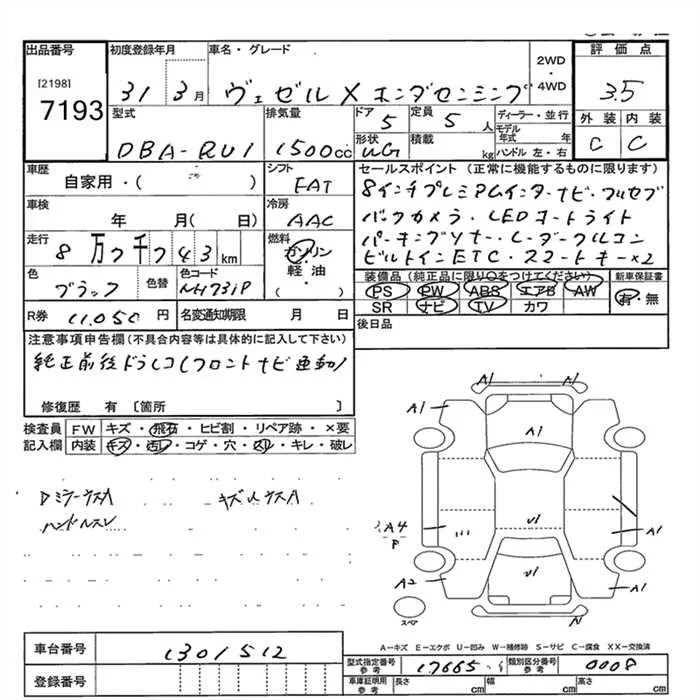 出品番号 初度登録年月 車名・グレード 評価点
[2198]
7193
31 3月 ヴェゼル X ホンダセンシング 2WD・4WD 3.5
型式 排気量 ドア 定員 ディーラー・並行 外装 内装
DBA-RU1 1500cc 5 5人 モデル年式 年 C C
形状 積載 kg ハンドル 左・右
車歴 シフト セールスポイント (正常に機能するものに限ります)
自家用・( ) FAT 8インチプレミアムインターナビ・フルセグ
車検 冷房 バックカメラ・LEDヘッドライト
年 月( 日) AAC
走行 燃料 パーキングソナー・レーダークルコン
8万 千 43km ガソリン・軽油・( ) ビルトインETC・スマートキー×2
色 色替 色コード 装備品 (純正品に限り○をつけてください) 新車保証書
ブラック NH731P PS PW ABS エアB AW 有・無
SR ナビ TV カワ
R券 11,050円 名変通知期限 月 日 後日品
注意事項申告欄(不具合内容等は具体的に記入して下さい)
純正前後ドラレコ(フロントナビ連動)
修復歴 有 〔箇所 〕
検査員 FW キズ・飛石・ヒビ割・リペア跡・×要
記入欄 内装 キズ・汚レ・コゲ・穴・スレ・キレ・破レ
A1 A1
A1 A1
DミラーキズA キズ
ハンドルスレ
A4 U1 A1
A2 U1 A1
スペア N
A=キズ E=エクボ U=凹み W=補修跡 S=サビ C=腐食 XX=交換済
車台番号 1301512
型式指定番号 参考 17665 類別区分番号 参考 0008
登録番号 車庫証明用 参考 長さ cm 幅 cm 高さ cm